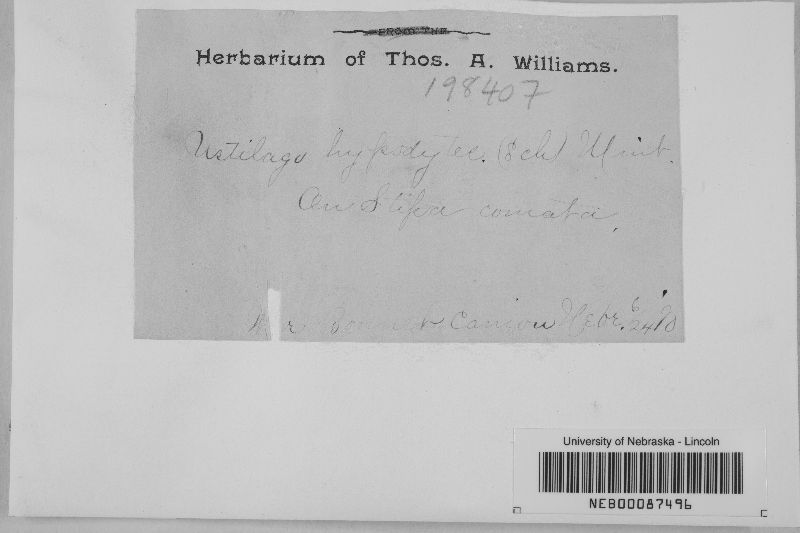 FROM THE
Herbarium of Thos. A. Williams.
198407
Ustilago hypodytes. (Sch)
On Stipa comata
Canyon Nebr. 6/24 90
University of Nebraska - Lincoln
NEB00087496